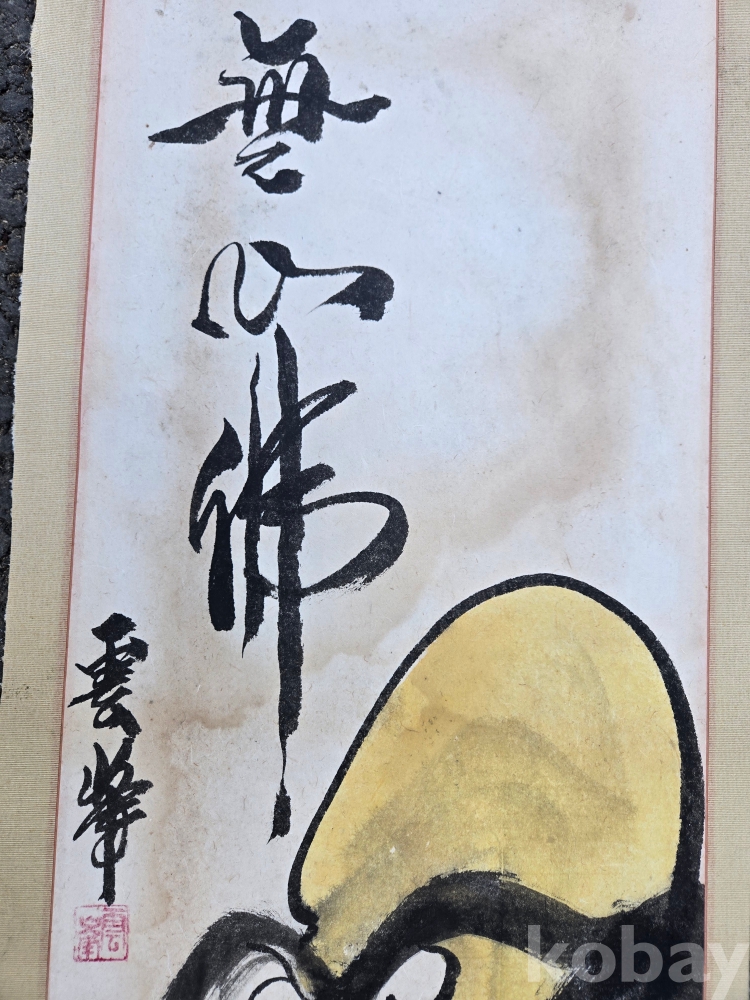 無心佛
雲峰
kobay